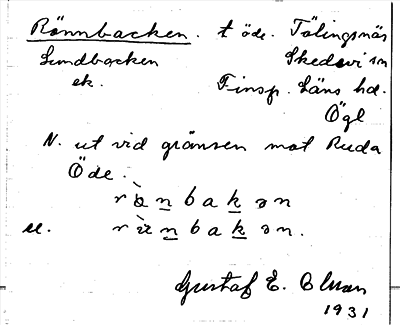 Rönnbacken. t öde. Tölingsnäs
Lundbacken Skedevi sn
ek. Finsp. Läns hd.
Ögl
N. ut vid gränsen mot Ruda
Öde.
r ö̀ n b a k ə n
el. r ù n b a k ə n.
Gustaf E.
1931